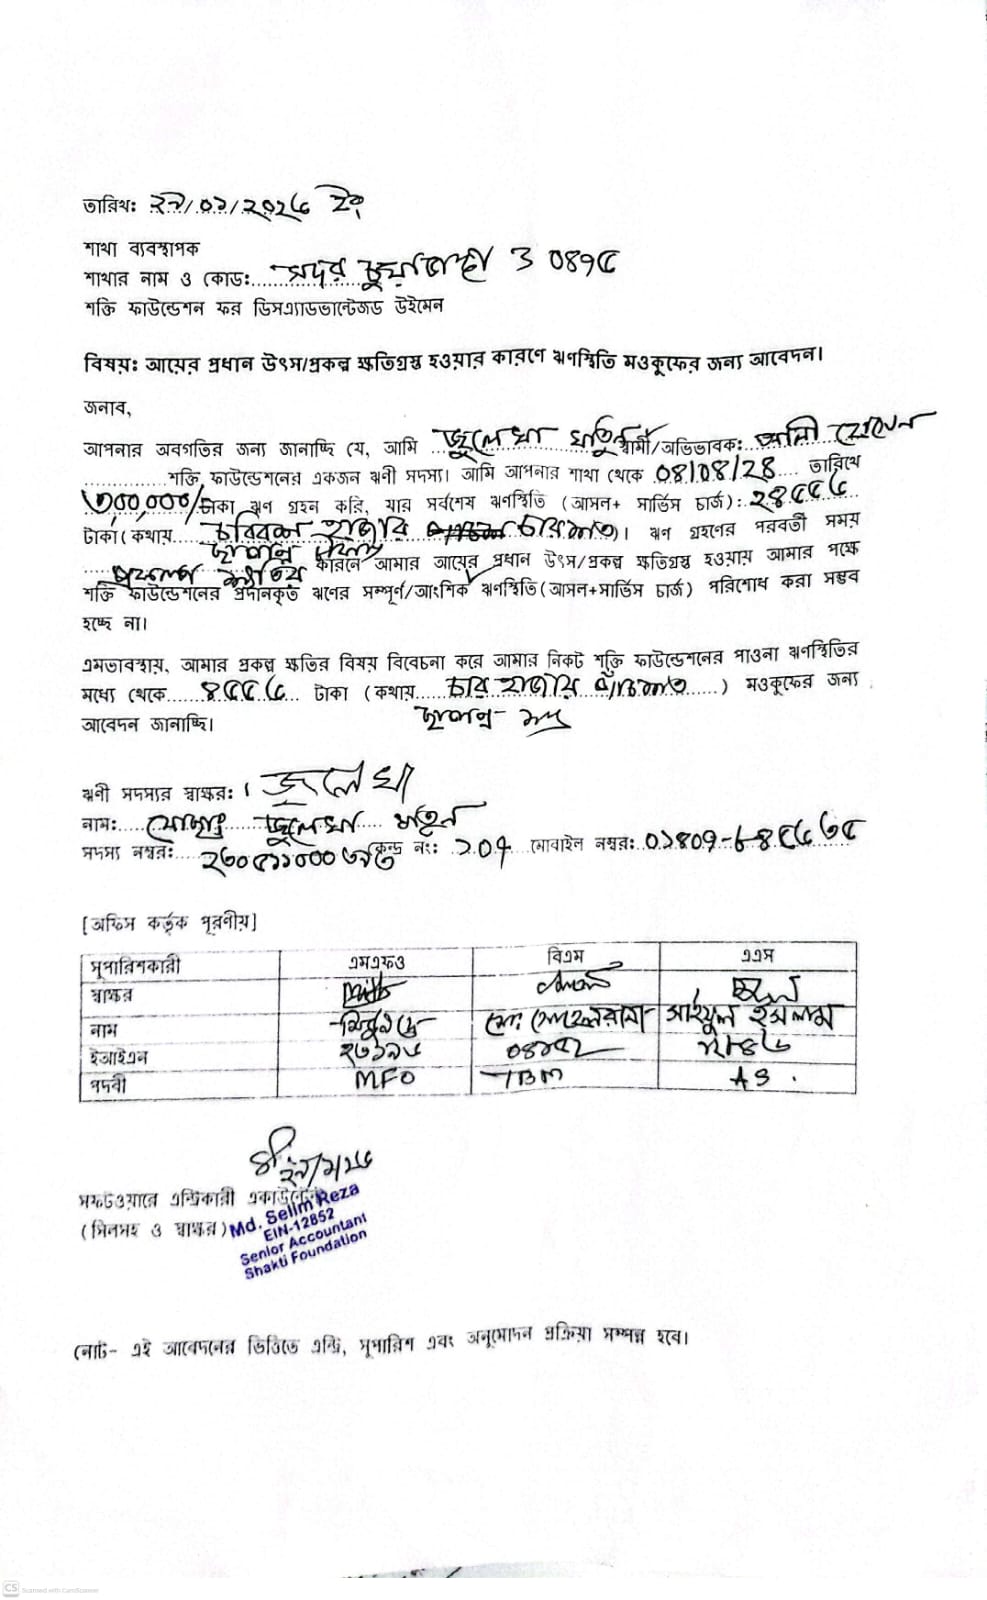 তারিখ: ২৭/০১/২০২৬ ইং
শাখা ব্যবস্থাপক
শাখার নাম ও কোড: সদর চুয়াডাঙ্গা ও 0৪৭৫
শক্তি ফাউন্ডেশন ফর ডিসএ্যাডভান্টেজড উইমেন
বিষয়: আয়ের প্রধান উৎস/প্রকল্প ক্ষতিগ্রস্ত হওয়ার কারণে ঋণস্থিতি মওকুফের জন্য আবেদন।
জনাব,
আপনার অবগতির জন্য জানাচ্ছি যে, আমি জুলেখা খাতুন স্বামী/অভিভাবক: আলী হোসেন
শক্তি ফাউন্ডেশনের একজন ঋণী সদস্য। আমি আপনার শাখা থেকে 0৪/0৪/২৪ তারিখে
৩00,000/ টাকা ঋণ গ্রহন করি, যার সর্বশেষ ঋণস্থিতি (আসল+ সার্ভিস চার্জ): ২৪৫৫৬
টাকা (কথায় চব্বিশ হাজার চারশত)। ঋণ গ্রহণের পরবর্তী সময়
ছাপান্ন টাকা
প্রকল্পে ক্ষতির কারনে আমার আয়ের প্রধান উৎস/প্রকল্প ক্ষতিগ্রস্ত হওয়ায় আমার পক্ষে
শক্তি ফাউন্ডেশনের প্রদানকৃত ঋণের সম্পূর্ণ/আংশিক ঋণস্থিতি (আসল+সার্ভিস চার্জ) পরিশোধ করা সম্ভব
হচ্ছে না।
এমতাবস্থায়, আমার প্রকল্প ক্ষতির বিষয় বিবেচনা করে আমার নিকট শক্তি ফাউন্ডেশনের পাওনা ঋণস্থিতির
মধ্যে থেকে ৪৫৫৬ টাকা (কথায় চার হাজার পাঁচশত) মওকুফের জন্য
ছাপান্ন
আবেদন জানাচ্ছি।
ঋণী সদস্যর স্বাক্ষর: জুলেখা
নাম: মোছাঃ জুলেখা খাতুন
সদস্য নম্বর: কেন্দ্র নং: ১০৭ মোবাইল নম্বর: 0১৪0৭-৮৪৫৬৩৫
[অফিস কর্তৃক পূরণীয়]
সুপারিশকারী এমএফও বিএম এএস
স্বাক্ষর
নাম মিঠুন দে মো: সোহেলরানা সাইফুল ইসলাম
ইআইএন
পদবী MFO TBM AS.
২৭/১/২৬
সফটওয়ারে এন্ট্রিকারী একাউন্টেন্ট
(সিলসহ ও স্বাক্ষর) Md. Selim Reza
EIN-12852
Senior Accountant
Shakti Foundation
নোট- এই আবেদনের ভিত্তিতে এন্ট্রি, সুপারিশ এবং অনুমোদন প্রক্রিয়া সম্পন্ন হবে।
CS Scanned with CamScanner